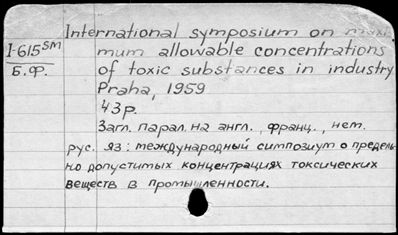 International symposium on maxi-
I-615 SM mum allowable concentrations
Б.Ф. of toxic substances in industry
Praha, 1959
43р.
Загл. парал. на англ., франц., нем.
рус. яз: международный симпозиум о предель
но допустимых концентрациях токсических
веществ в промышленности.